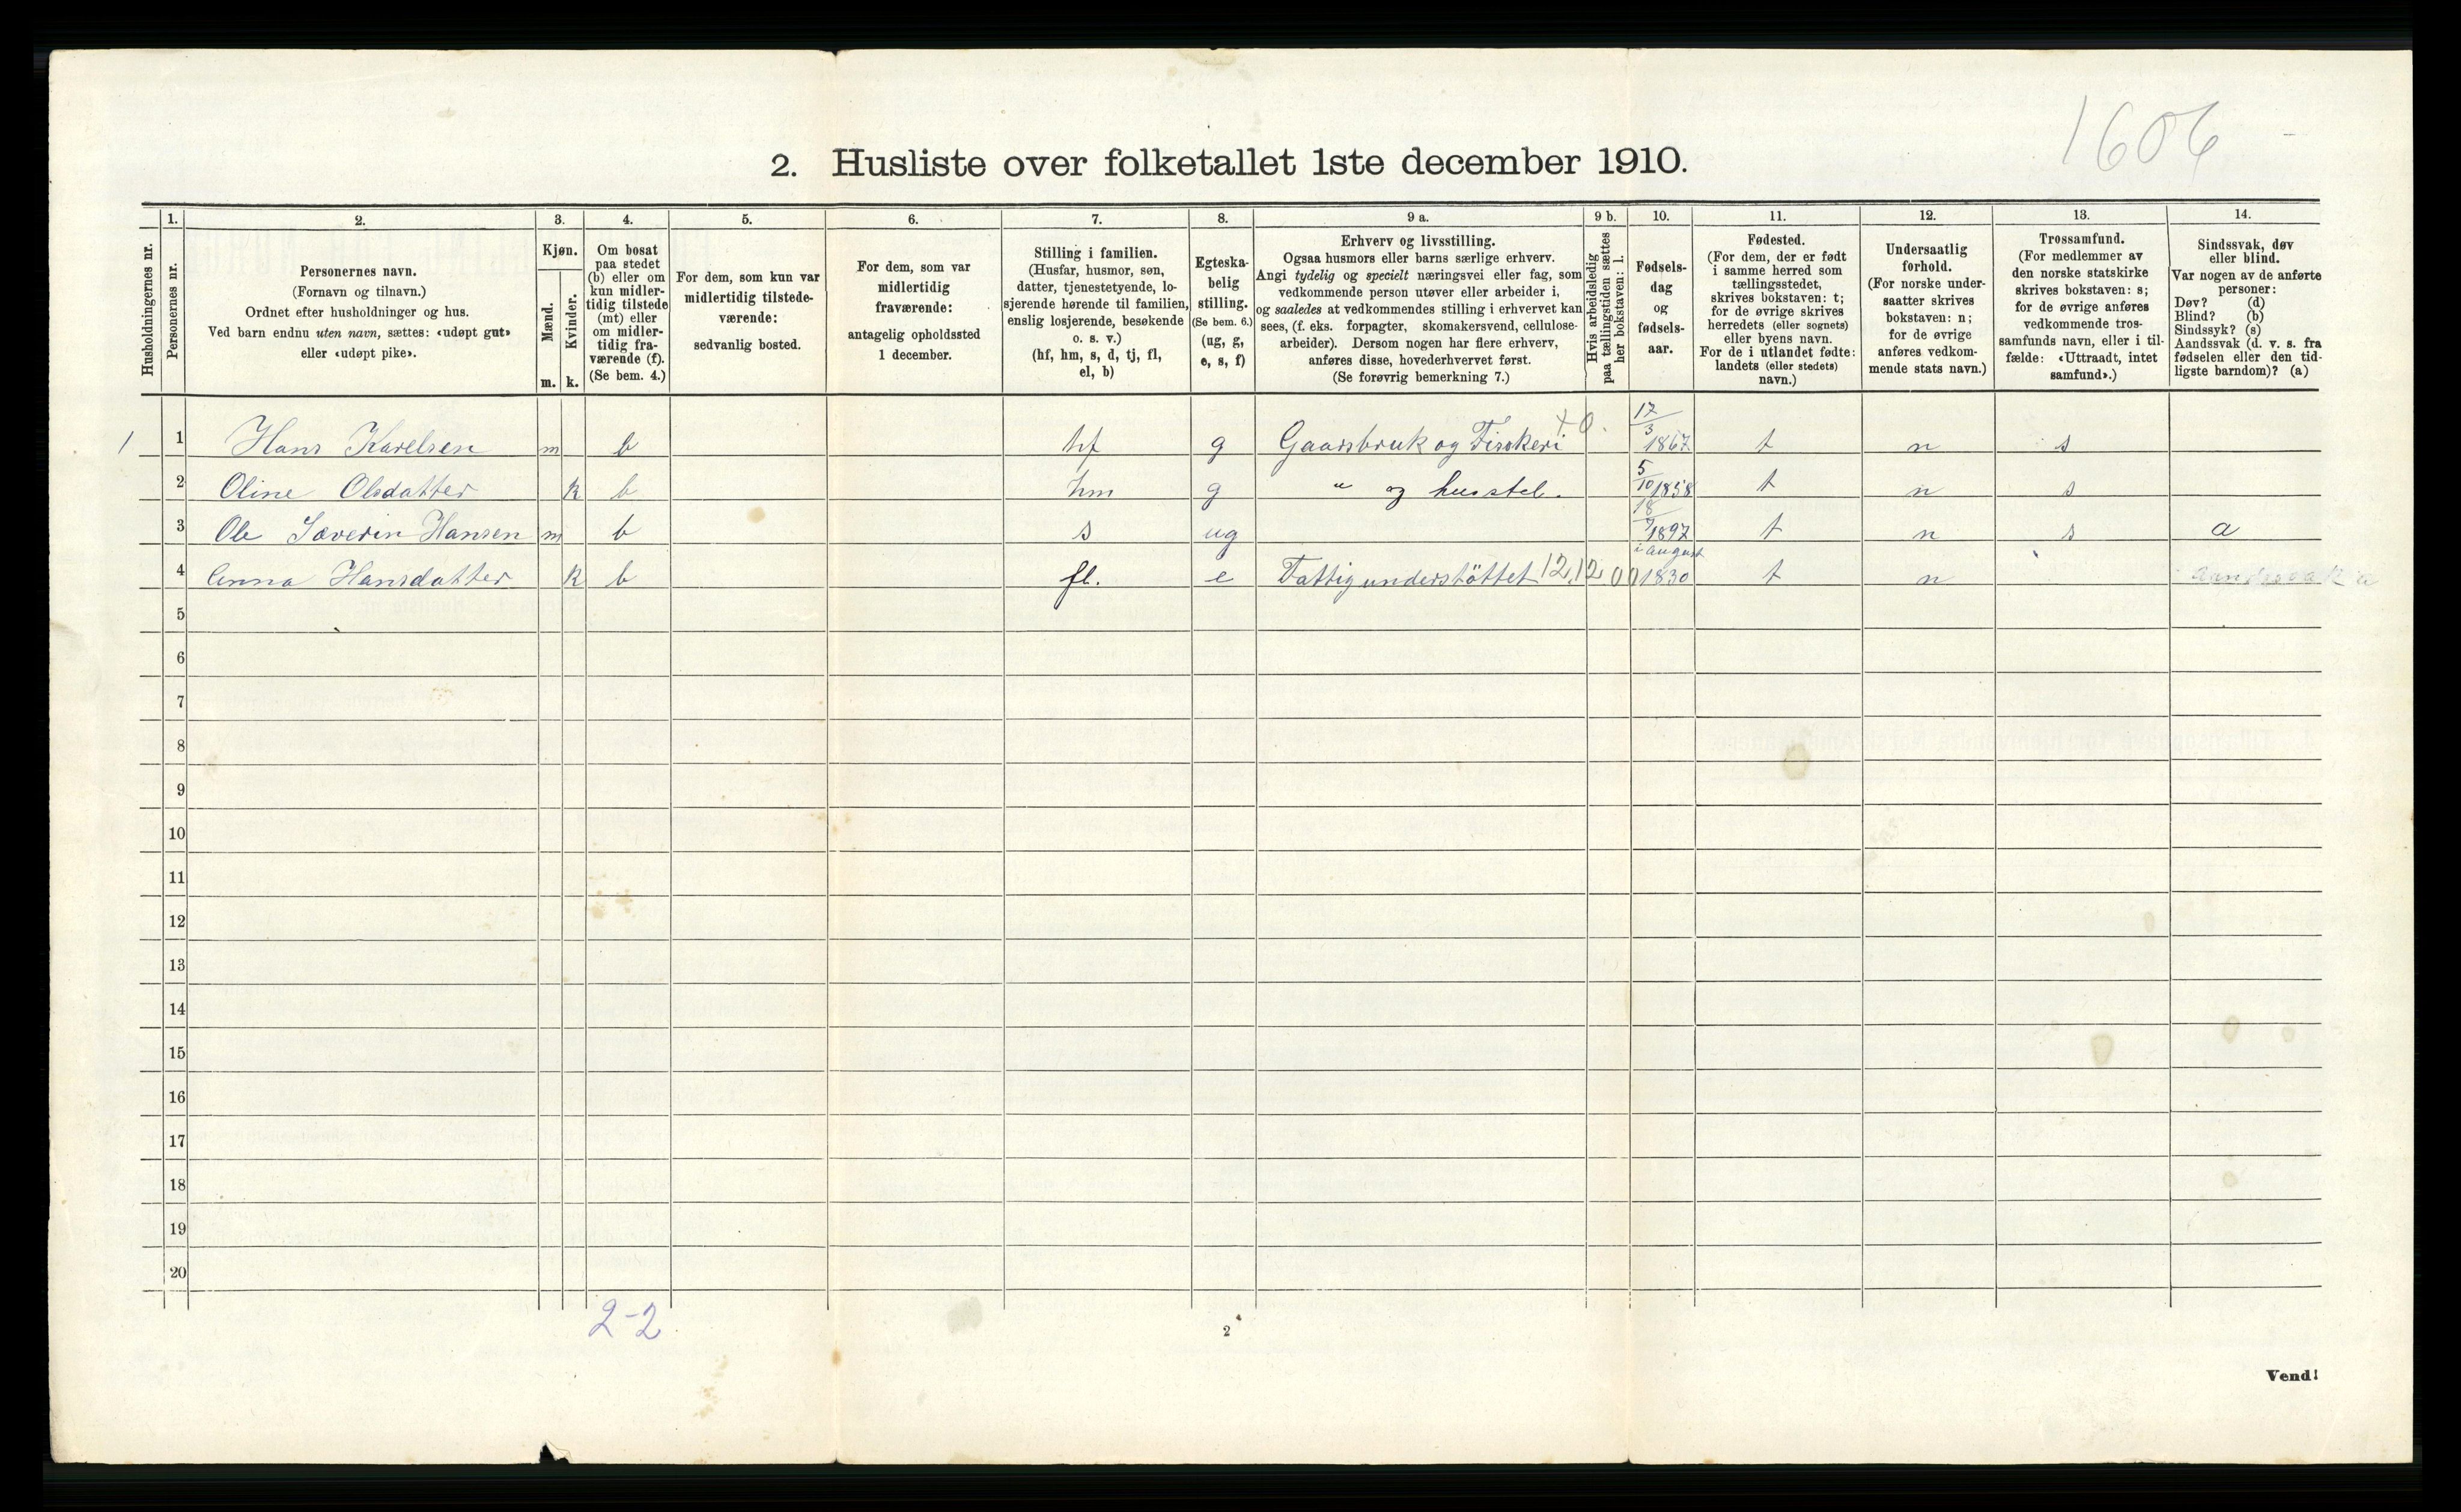 1606
2. Husliste over folketallet 1ste december 1910.
Husholdningernes nr.
1.
Personernes nr.
2.
Personernes navn.
(Fornavn og tilnavn.)
Ordnet efter husholdninger og hus.
Ved barn endnu uten navn, sættes: «udøpt gut»
eller «udøpt pike».
3.
Kjøn.
Mænd.
Kvinder.
m. k.
4.
Om bosat
paa stedet
(b) eller om
kun midler-
tidig tilstede
(mt) eller
om midler-
tidig fra-
værende (f).
(Se bem. 4.)
5.
For dem, som kun var
midlertidig tilstede-
værende:
sedvanlig bosted.
6.
For dem, som var
midlertidig
fraværende:
antagelig opholdssted
1 december.
7.
Stilling i familien.
(Husfar, husmor, søn,
datter, tjenestetyende, lo-
sjerende hørende til familien,
enslig losjerende, besøkende
o. s. v.)
(hf, hm, s, d, tj, fl,
el, b)
8.
Egteska-
belig
stilling.
(Se bem. 6.)
(ug, g,
e, s, f)
9 a.
Erhverv og livsstilling.
Ogsaa husmors eller barns særlige erhverv.
Angi tydelig og specielt næringsvei eller fag, som
vedkommende person utøver eller arbeider i,
og saaledes at vedkommendes stilling i erhvervet kan
sees, (f. eks. forpagter, skomakersvend, cellulose-
arbeider). Dersom nogen har flere erhverv,
anføres disse, hovederhvervet først.
(Se forøvrig bemerkning 7.)
9 b.
Hvis arbeidsledig
paa tællingstiden sættes
her bokstaven: l.
10.
Fødsels-
dag
og
fødsels-
aar.
11.
Fødested.
(For dem, der er født
i samme herred som
tællingsstedet,
skrives bokstaven: t;
for de øvrige skrives
herredets (eller sognets)
eller byens navn.
For de i utlandet fødte:
landets (eller stedets)
navn.)
12.
Undersaatlig
forhold.
(For norske under-
saatter skrives
bokstaven: n;
for de øvrige
anføres vedkom-
mende stats navn.)
13.
Trossamfund.
(For medlemmer av
den norske statskirke
skrives bokstaven: s;
for de øvrige anføres
vedkommende tros-
samfunds navn, eller i til-
fælde: «Uttraadt, intet
samfund».)
14.
Sindssvak, døv
eller blind.
Var nogen av de anførte
personer:
Døv? (d)
Blind? (b)
Sindssyk? (s)
Aandssvak (d. v. s. fra
fødselen eller den tid-
ligste barndom)? (a)
1 1 Hans Karelsen m b hf g Gaardsbruk og Fiskeri 17/3 1867 t n s
2 Oline Olsdatter k b hm g " og husstel. 5/10 1858 t n s
3 Ole Severin Hansen m b s ug 18/9 1897 t n s a
4 Anna Hansdatter k b fl. e Fattigunderstöttet 12,12 00 i august 1830 t n aandssvak a
5
6
7
8
9
10
11
12
13
14
15
16
17
18
19
20
2-2
2
Vend!